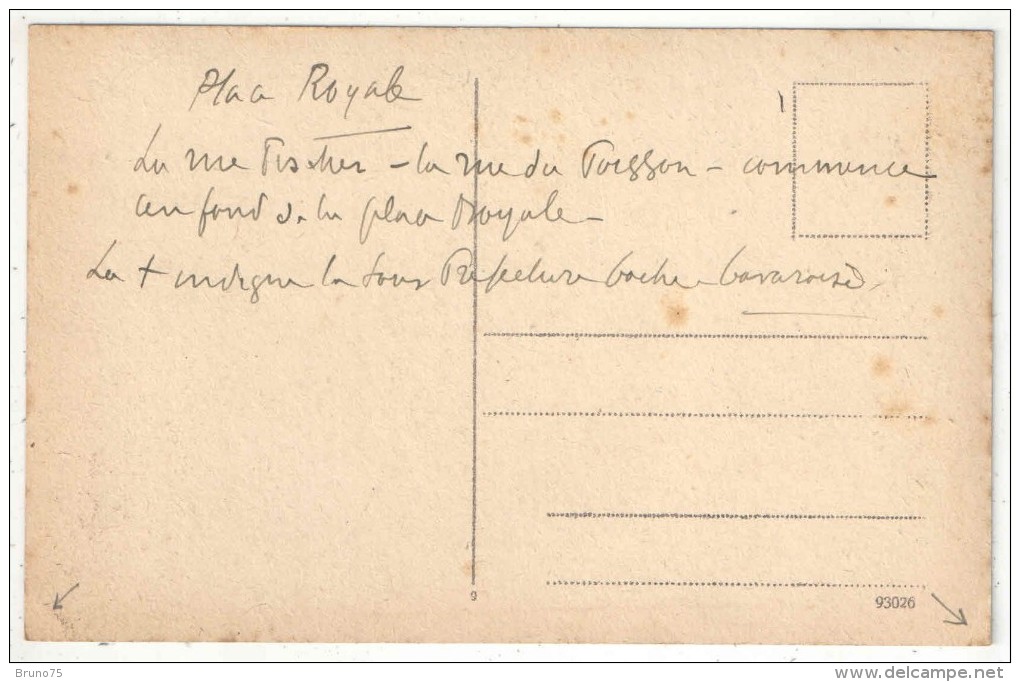 Place Royale
La rue Fischer – la rue du Poisson – commence
au fond de la place Royale –
La + indique la Sous Préfecture boche bavaroise.
9
93026
Bruno75
www.delcampe.net